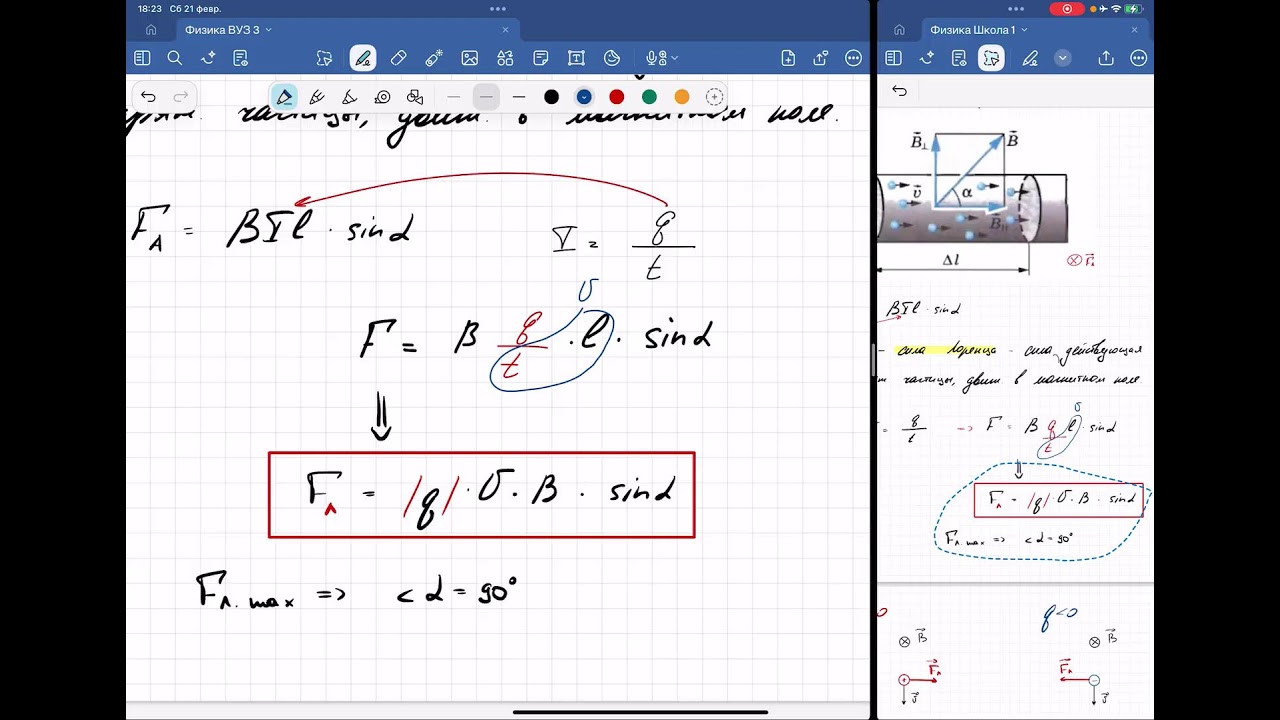 18:23 Сб 21 февр.
Физика ВУЗ 3
частицы, движ. в магнитном поле.
F_A = BIl · sinα
I = q/t
υ
F = B q/t · l · sinα
⇓
F_л = |q| · υ · B · sinα
F_л.max => <α = 90°
Физика Школа 1
B⊥ B
υ α
B||
Δl
⊗ F_л
BIl · sinα
- сила Лоренца - сила, действующая
частицы, движ в магнитном поле
= q/t => F = B q/t l · sinα
υ
⇓
F_л = |q| · υ · B · sinα
F_л.max => <α = 90°
0 q<0
⊗ B ⊗ B
F_л F_л
+ −